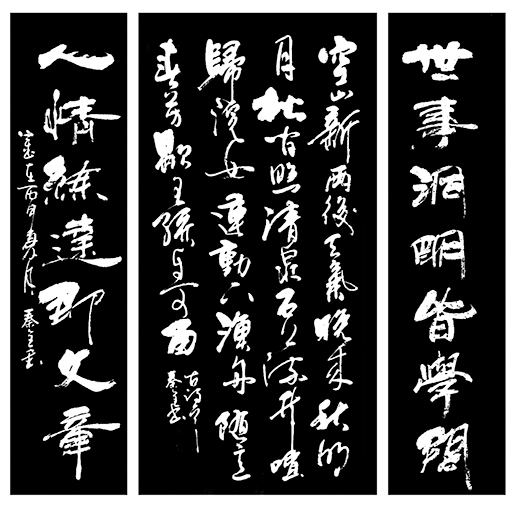 世事洞明皆學問
空山新雨後天氣晚來秋明
月松間照清泉石上流竹喧
歸浣女蓮動下漁舟隨意
春芳歇王孫自可留
人情練達即文章
歲在丙申夏月